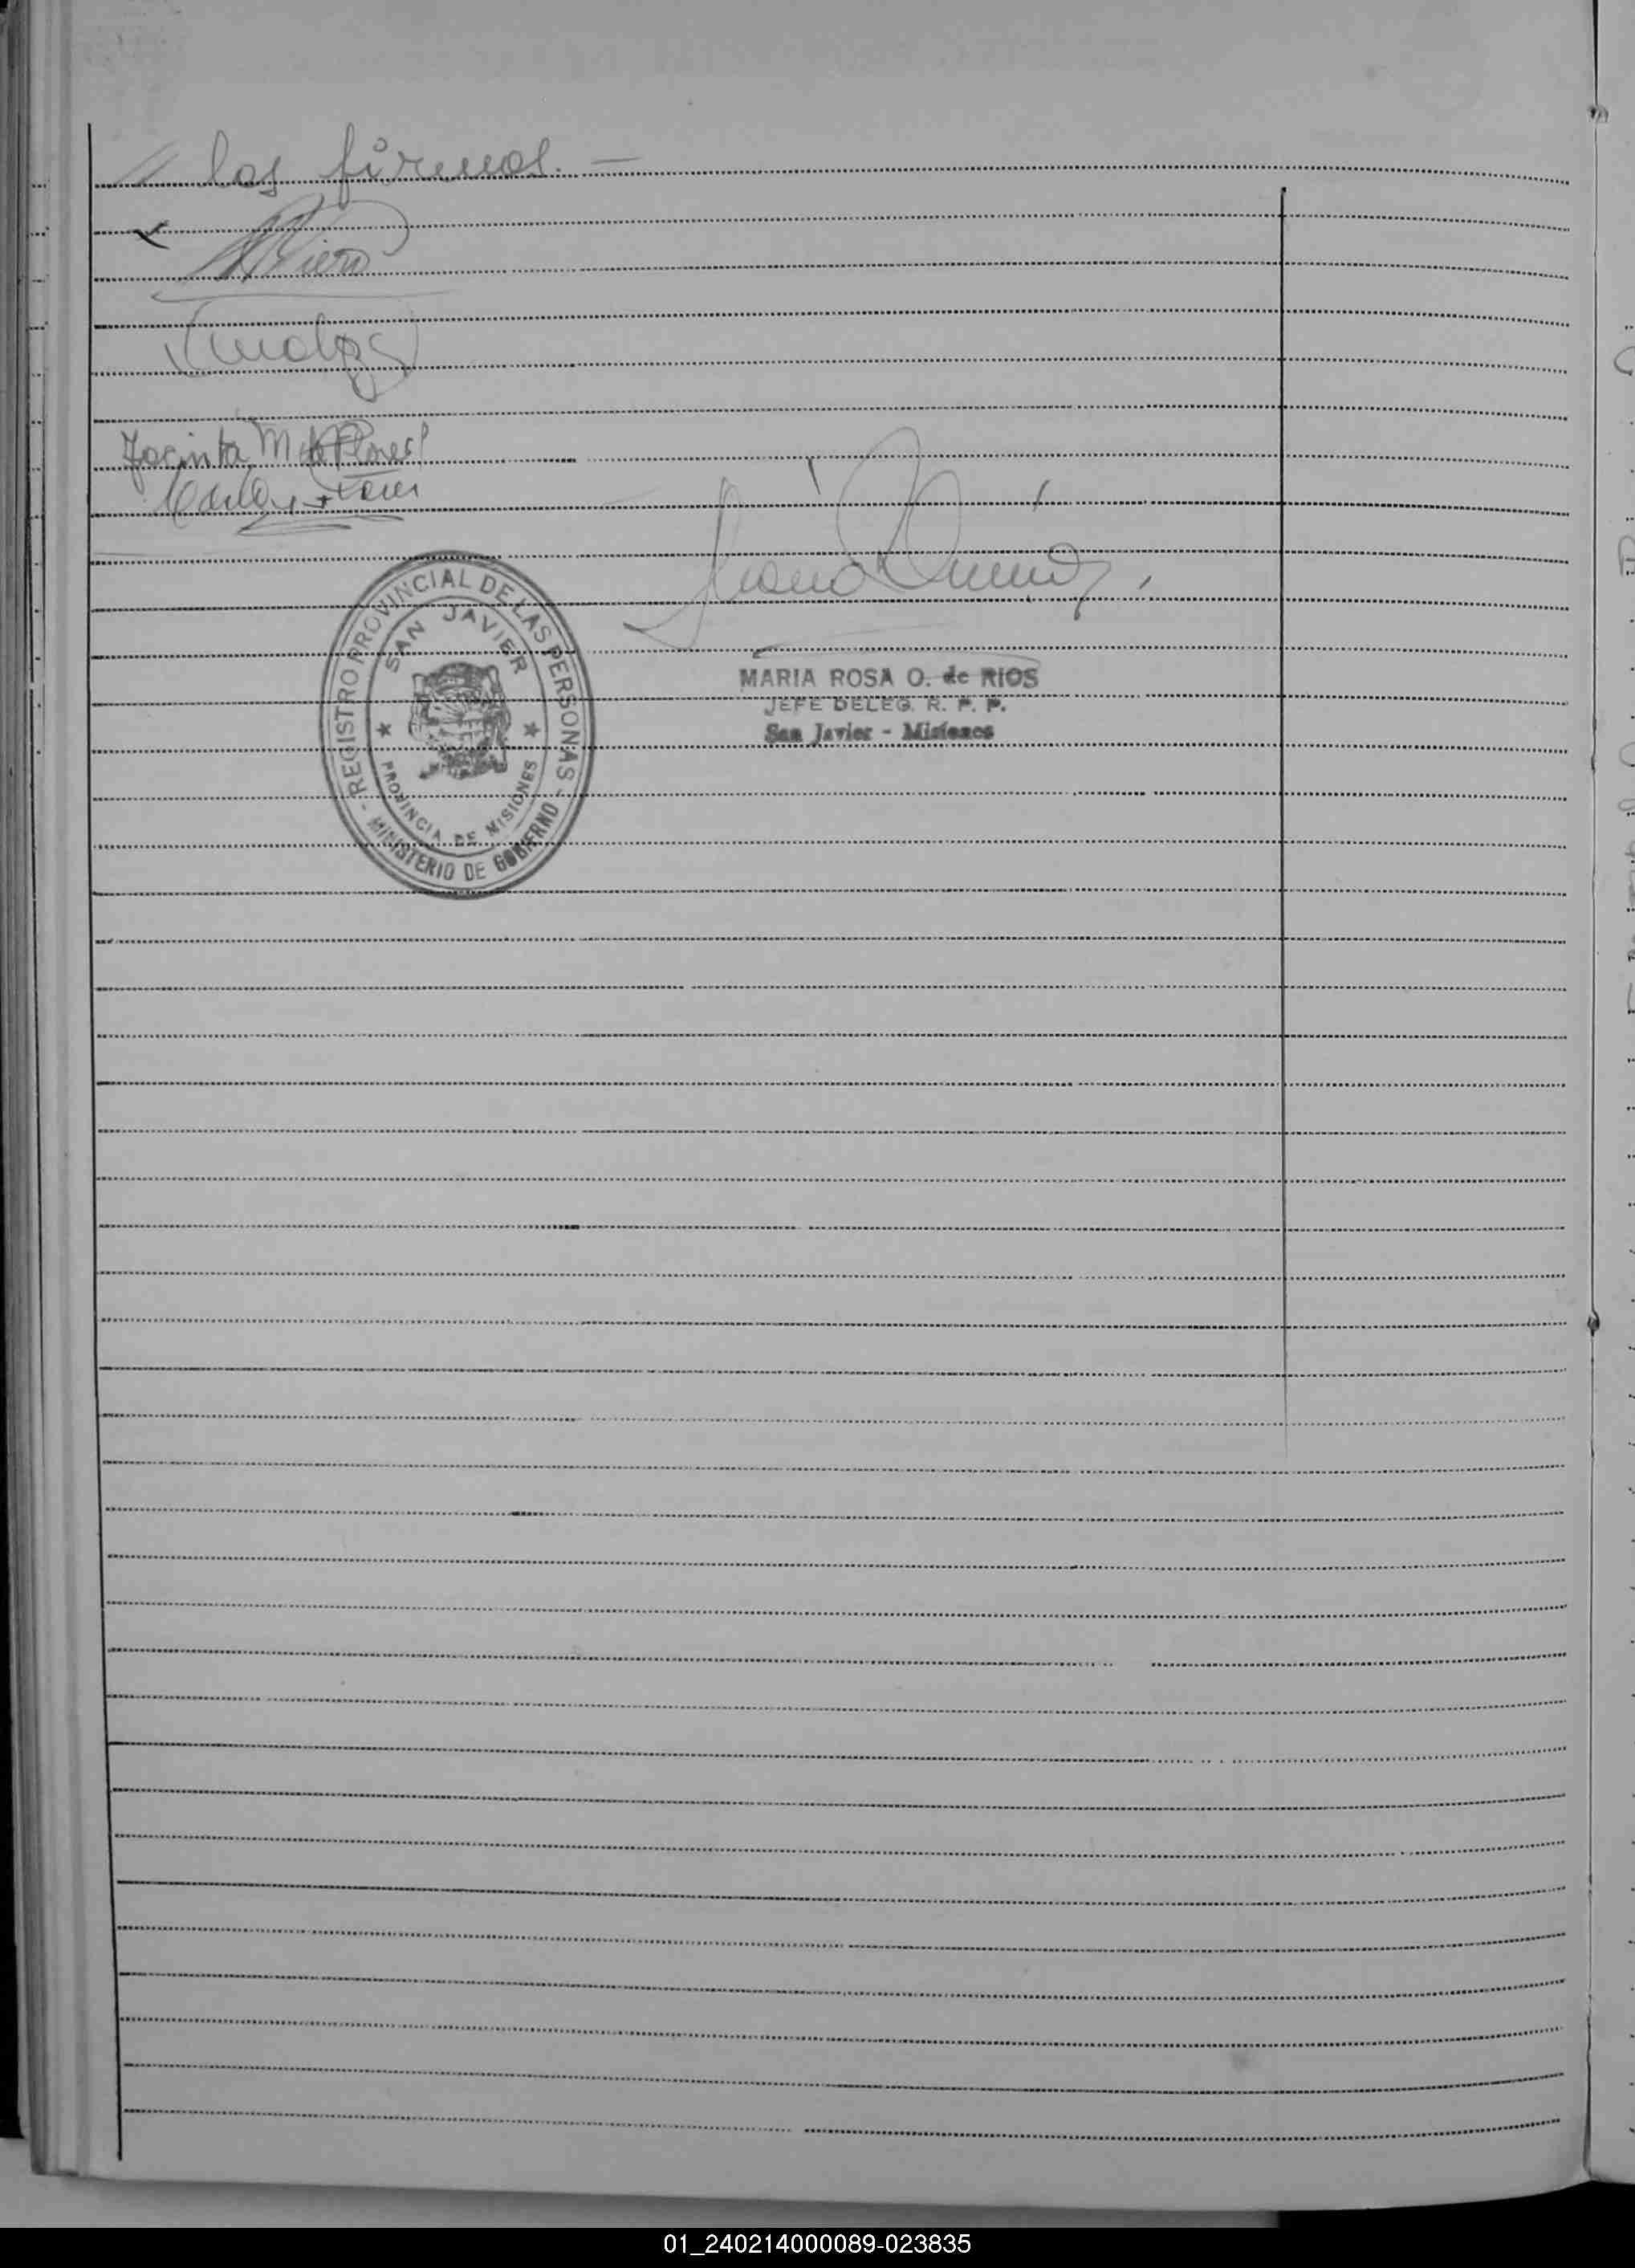 // las firmas. —
Viero
Jacinta M de Flores
Carlos Flores
REGISTRO PROVINCIAL DE LAS PERSONAS
SAN JAVIER
PROVINCIA DE MISIONES
- MINISTERIO DE GOBIERNO -
MARIA ROSA O. de RIOS
JEFE DELEG. R. P. P.
San Javier - Misiones
01_240214000089-023835